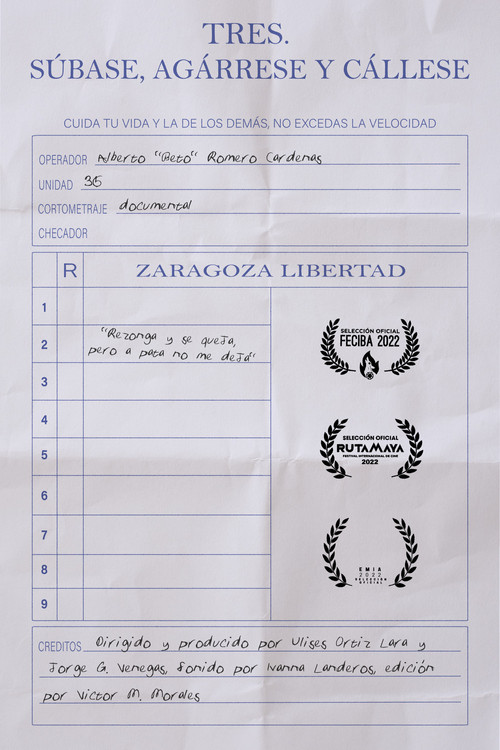 TRES.
SÚBASE, AGÁRRESE Y CÁLLESE
CUIDA TU VIDA Y LA DE LOS DEMÁS, NO EXCEDAS LA VELOCIDAD
OPERADOR Alberto "Beto" Romero Cardenas
UNIDAD 315
CORTOMETRAJE documental
CHECADOR
R ZARAGOZA LIBERTAD
1
2 "Rezonga y se queja,
pero a pata no me deja"
3
4
5
6
7
8
9
SELECCIÓN OFICIAL
FECIBA 2022
SELECCIÓN OFICIAL
RUTAMAYA
FESTIVAL INTERNACIONAL DE CINE
2022
EMIA
2022
SELECCIÓN
OFICIAL
CREDITOS Dirigido y producido por Ulises Ortiz Lara y
Jorge G. Venegas, sonido por Ivanna Landeros, edición
por Victor M. Morales